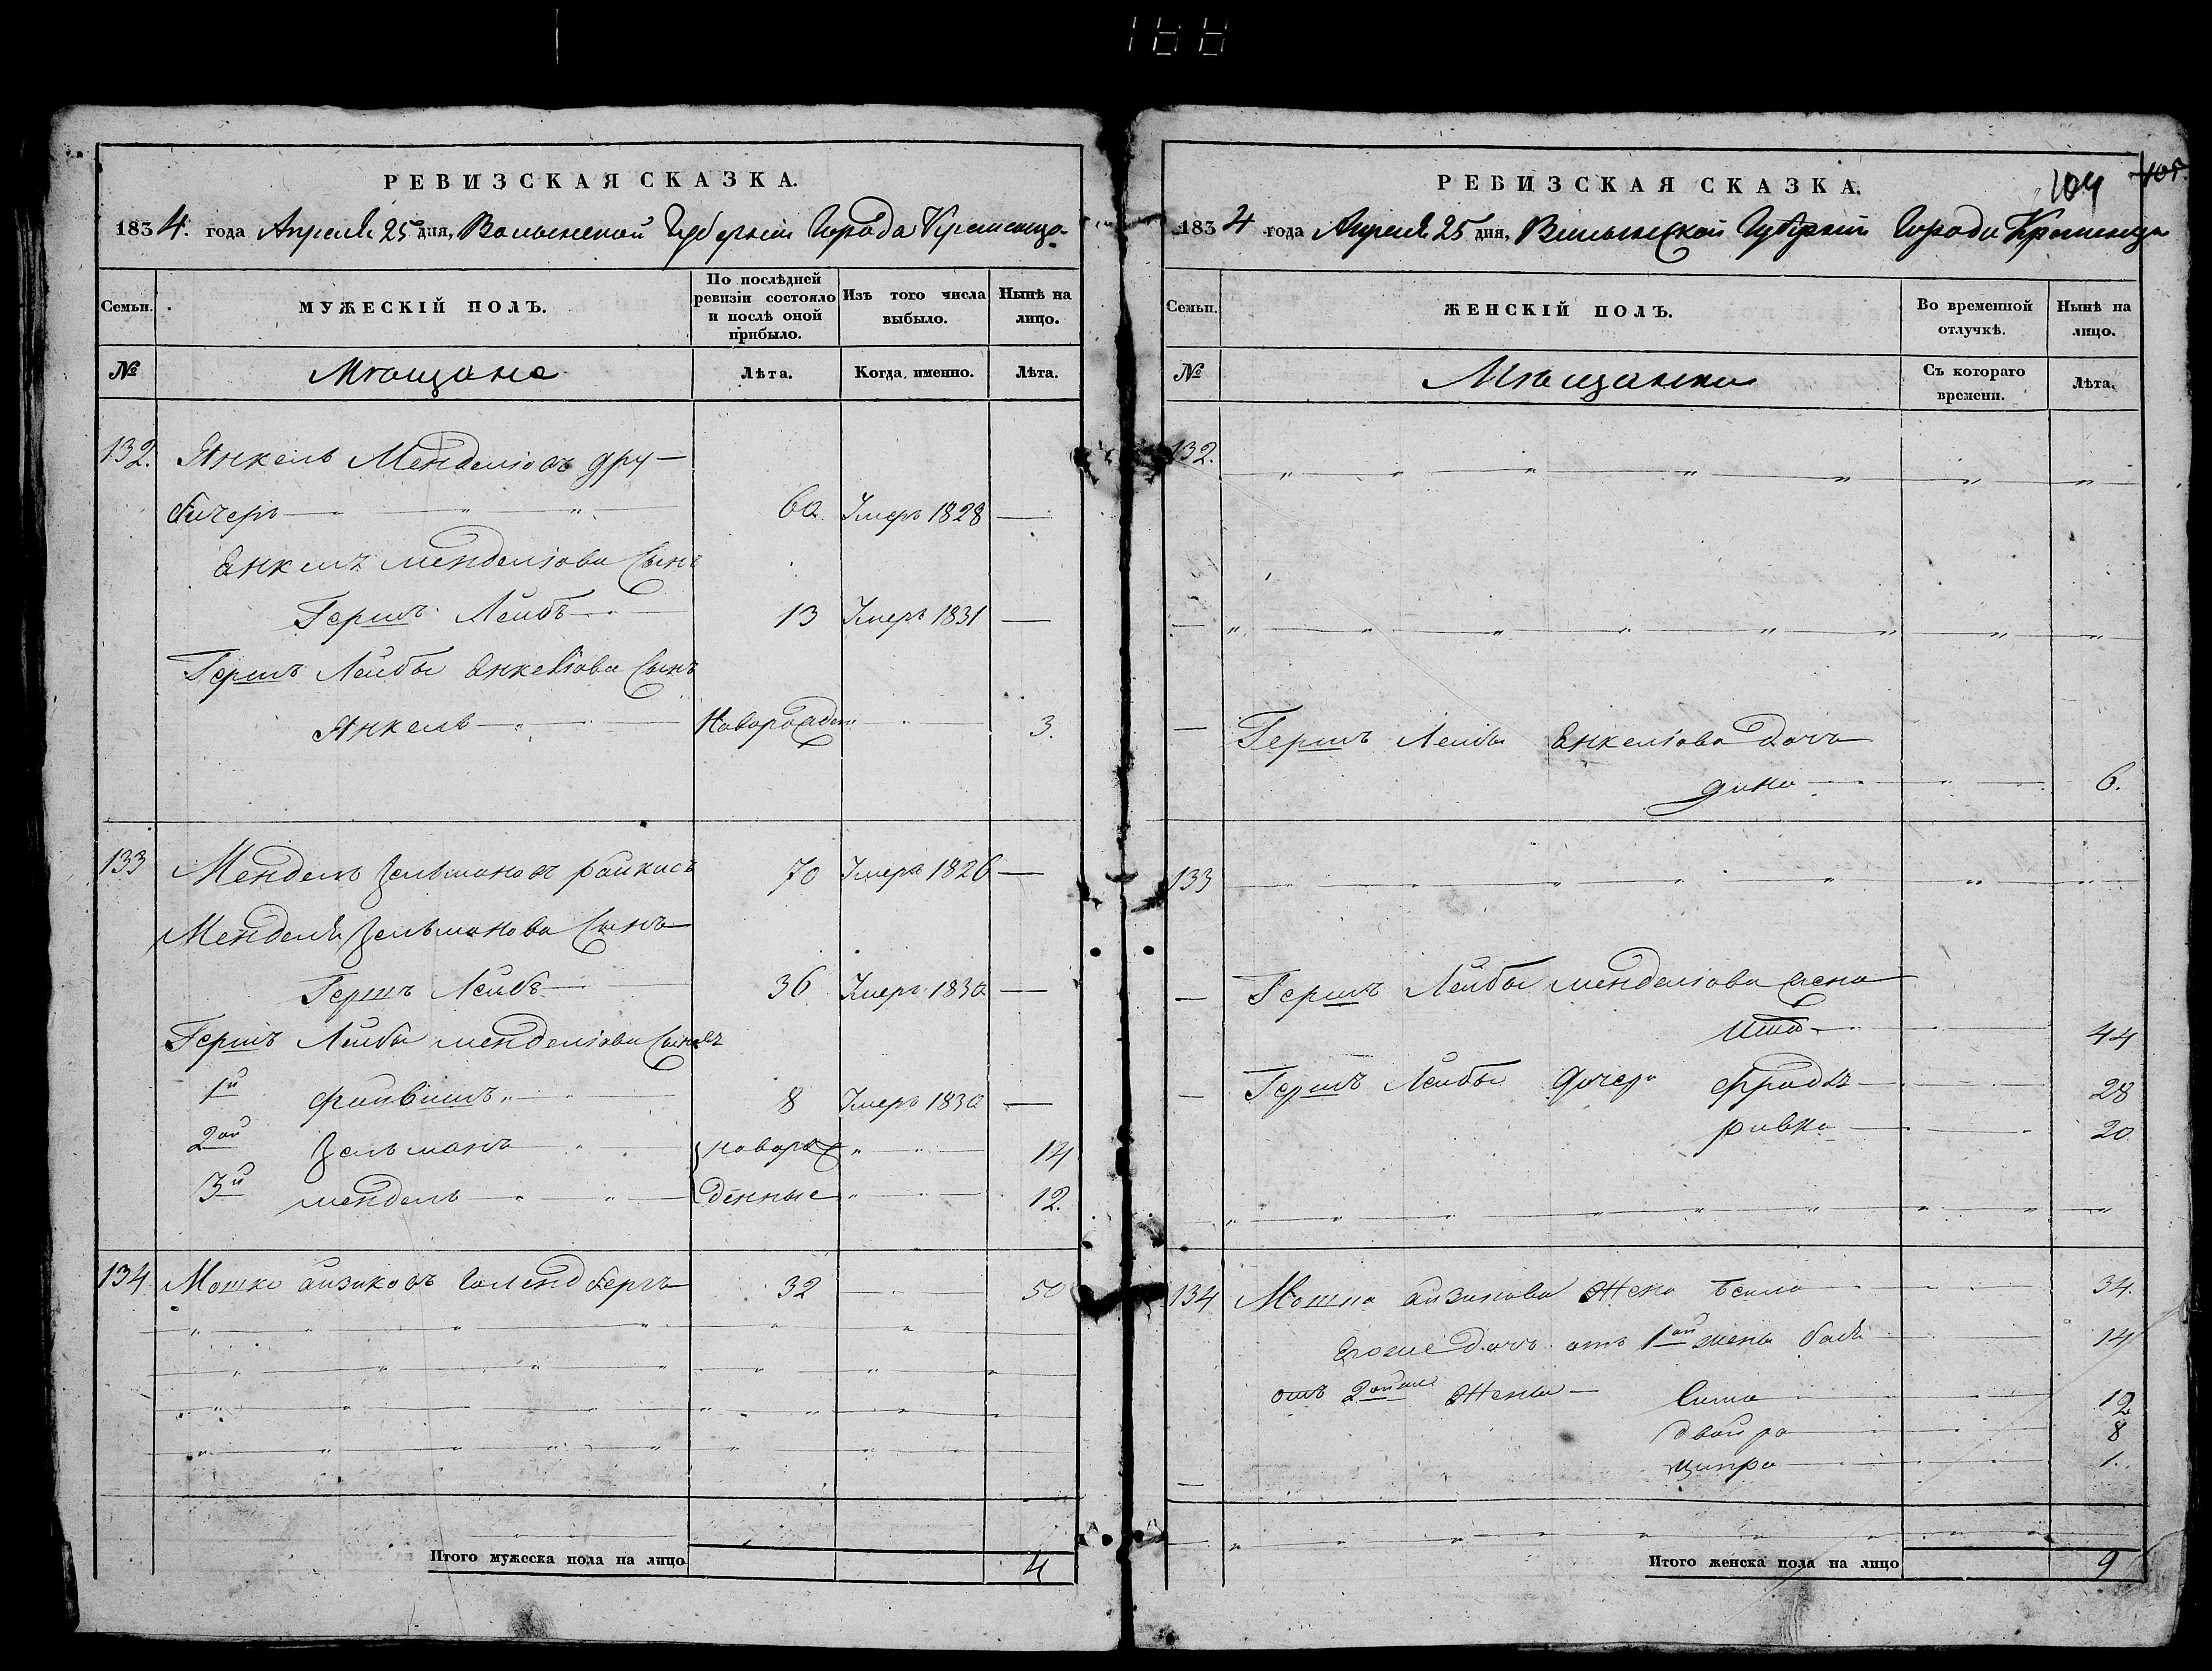 168
РЕВИЗСКАЯ СКАЗКА.
1834. года Апреля 25 дня, Волынской Губернiи Города Кременца
Семьи. МУЖЕСКІЙ ПОЛЪ. По послѣдней ревизіи состояло и послѣ оной прибыло. Изъ того числа выбыло. Нынѣ на лицо.
№ Мѣщане Лѣта. Когда именно. Лѣта.
132. Янкель Менделiовъ дру-
бичеръ 60. Умеръ 1828 —
Енкеля Менделiова Сынъ
Гершъ Лейбъ 13 Умеръ 1831 —
Гершъ Лейбы Енкелiова Сынъ
Янкель Новорожден 3.
133 Мендель Зельмановъ 70 Умеръ 1826 —
Менделя Зельманова Сынъ
Гершъ Лейбъ 36 Умеръ 1830 —
Гершъ Лейбы Менделiова Сыновья
1й Файвишъ 8 Умеръ 1830 —
2ой Зельманъ новорож 14
3й Мендель денные 12.
134. Мошко Айзиковъ Голендбергъ 32 50
Итого мужеска пола на лицо 4
104 105
РЕВИЗСКАЯ СКАЗКА.
1834 года Апреля 25 дня, Волынской Губернiи Города Кременца
Семьи. ЖЕНСКІЙ ПОЛЪ. Во временной отлучкѣ. Нынѣ на лицо.
№ Мѣщанки Съ котораго времени. Лѣта.
132.
— Гершъ Лейбы Енкелiова Дочь
Дина 6.
133
— Гершъ Лейбы Менделiова жена
44
— Гершъ Лейбы Дочери Фрадя 28
Ривка 20
134 Мошка Айзикова Жена Бейла 34.
Егоже Дочь отъ 1ой жены Бася 14
отъ 2ойже Жены — Сима 12
Двойра 8
Ципра 1.
Итого женска пола на лицо 9